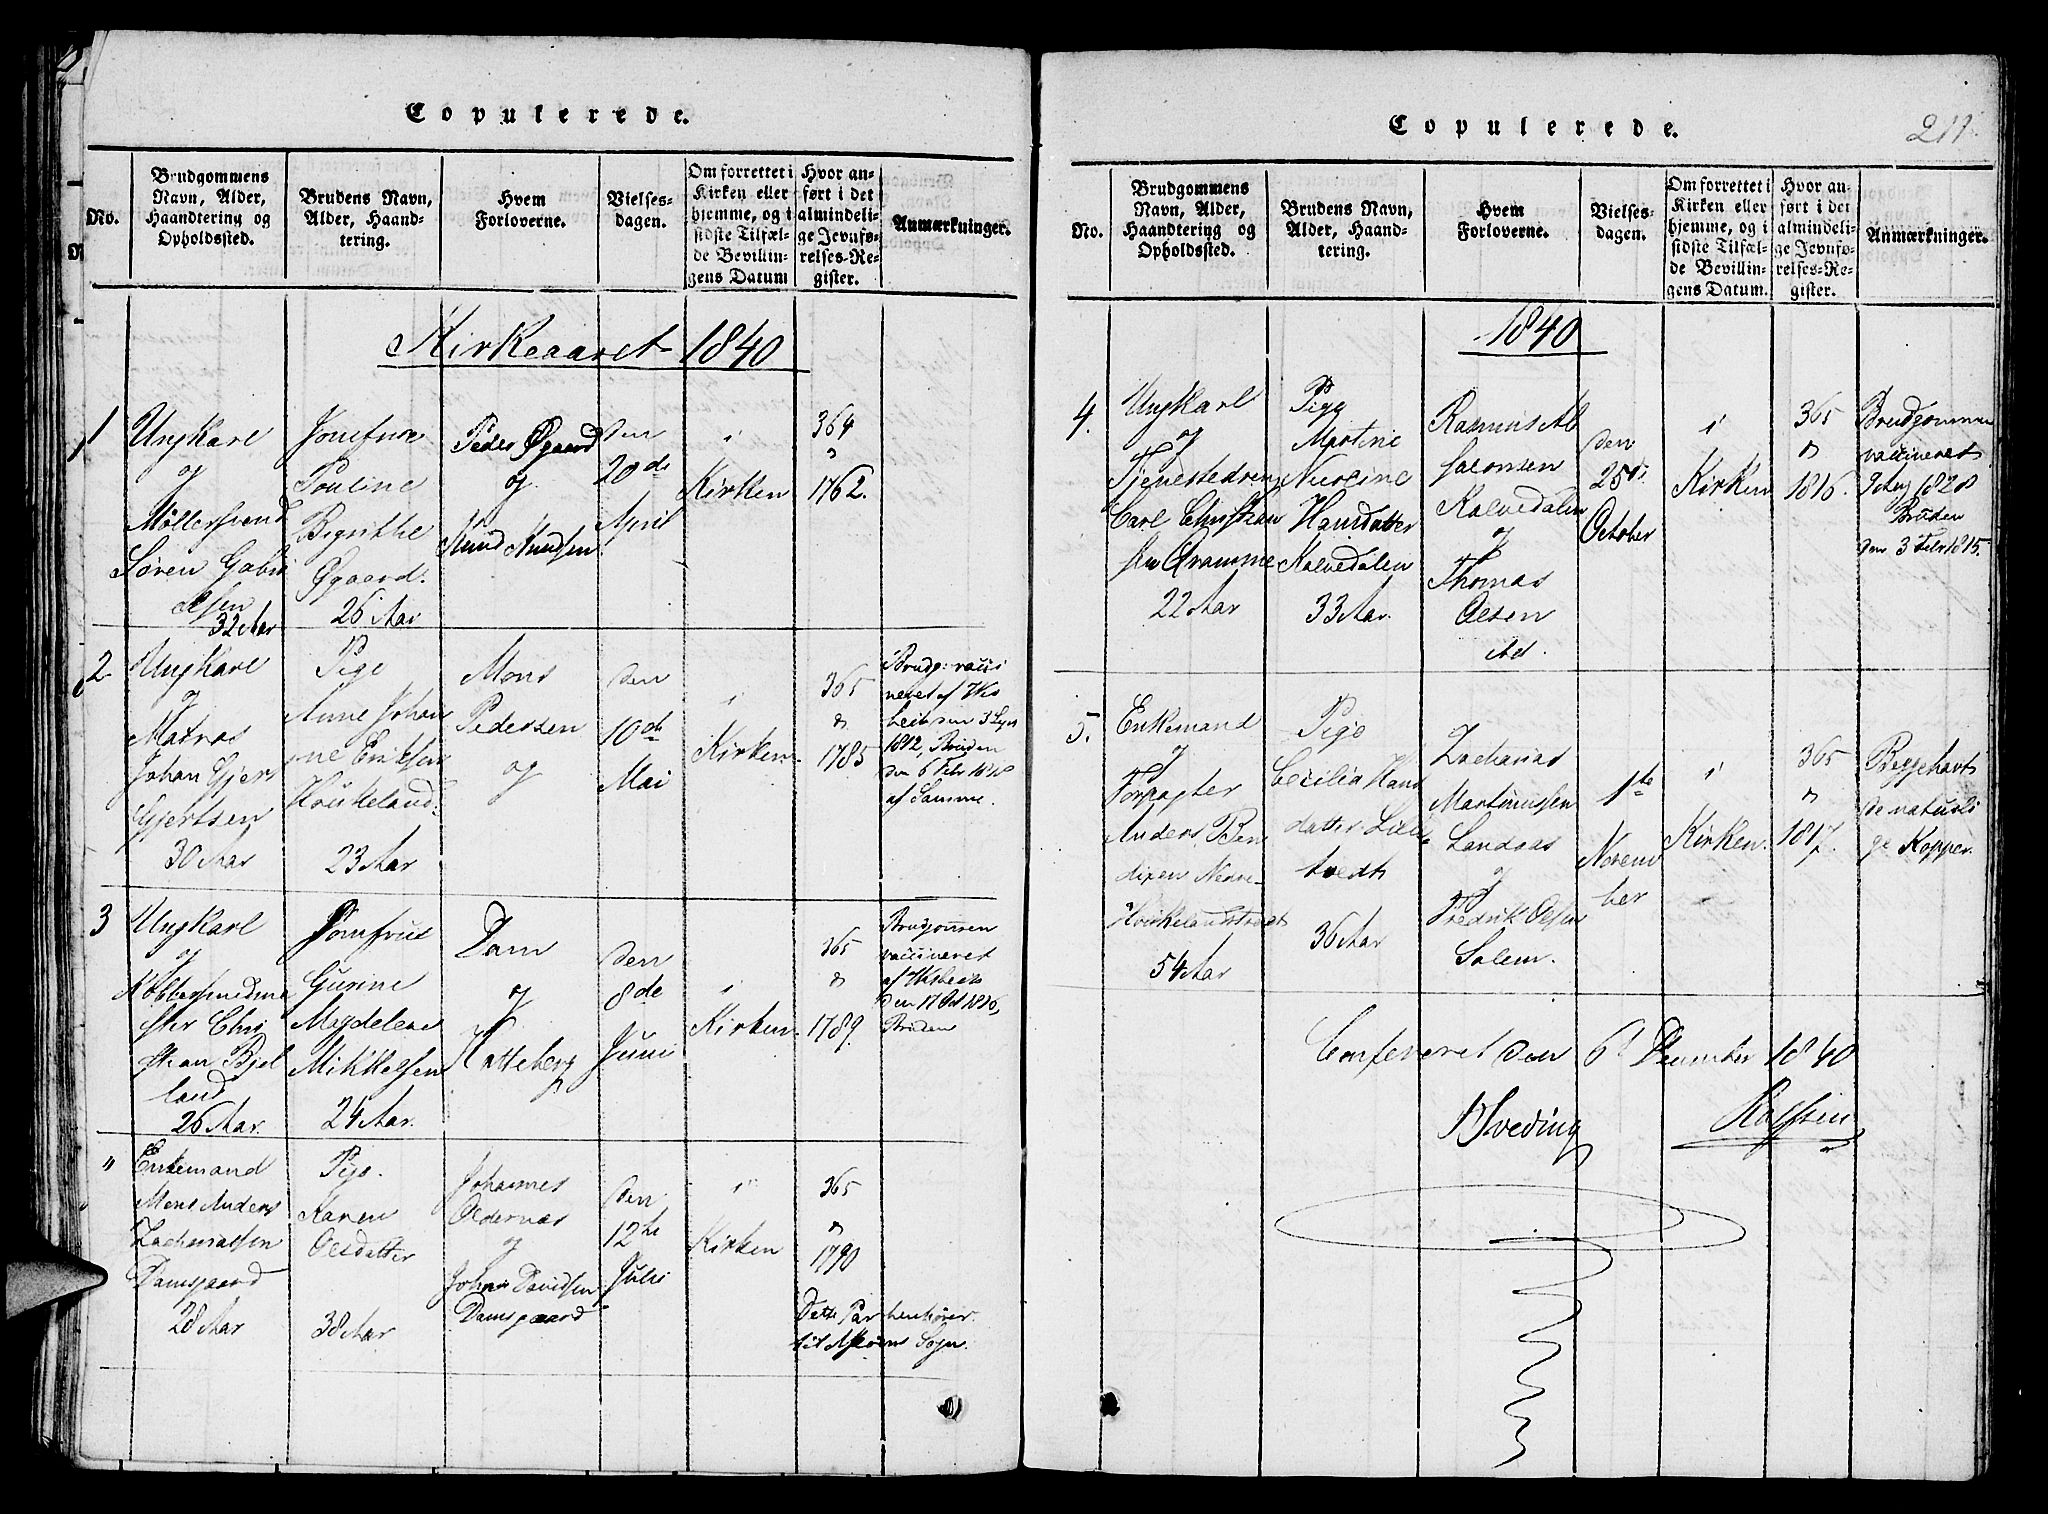 Copulerede.
No.
Brudgommens
Navn, Alder,
Haandtering og
Opholdssted.
Brudens Navn,
Alder, Haand-
tering.
Hvem
Forloverne.
Vielses-
dagen.
Om forrettet i
Kirken eller
hjemme, og i
sidste Tilfæl-
de Bevillin-
gens Datum
Hvor an-
ført i det
almindeli-
ge Jevnfø-
relses-Re-
gister.
Anmærkninger.
Kirkeaaret 1840
1
Ungkarl
og
Møllersvend
Søren Gabri
elsen
32 Aar
Jomfrue
Pouline
Birgithe
Øgaard.
26 Aar
Peder Øgaard
og
Knud Knudsen
den
20de
April
i
Kirken
364
1762.
2
Ungkarl
og
Matros
Johan Gjert
Gjertsen
30 Aar
Pige
Anne Johan
ne Eriksen
Houkeland
23 Aar
Mons
Pedersen
og
den
10de
Mai
i
Kirken
365
1785
Brudg. vacci
neret af
den 3
1812, Bruden
den 6 Febr
af Samme.
3
Ungkarl
og
Kobbersmedme
ster Chri
stian Bjel
land
26 Aar.
Jomfrue
Gurine
Magdelene
Mikkelsen
24 Aar.
Dam
og
Katteberg
den
8de
Juni
i
Kirken
365
1789.
Brudgommen
vaccineret
af
den 17
Bruden
"
Enkemand
Mons Anders
Zachariasen
Damsgaard
28 Aar
Pige
Karen
Olsdatter
38 Aar
Johannes
Oldernæs
og
Johan Davidsen
Damsgaard
den
12te
Juli
i
Kirken
365
1790
Dette Par henhører
til Askøens Sogn.
Copulerede.
211
No.
Brudgommens
Navn, Alder,
Haandtering og
Opholdssted.
Brudens Navn,
Alder, Haand-
tering.
Hvem
Forloverne.
Vielses-
dagen.
Om forrettet i
Kirken eller
hjemme, og i
sidste Tilfæl-
de Bevillin-
gens Datum.
Hvor an-
ført i det
almindeli-
ge Jevnfø-
relses-Re-
gister.
Anmærkninger.
1840
4.
Ungkarl
og
Tjenestedreng
Carl Christian
22 Aar
Pige
Martine
Nicoline
Hansdatter
Kalvedalen
33 Aar.
Rasmus
Salomsen
Kalvedalen
og
Thomas
Olsen
den
25de
October
i
Kirken
365
1816.
Brudgommen
vaccineret
1828
Bruden
den 3 Febr 1815
5.
Enkemand
og
Forpagter
Anders Ben
dixen Nedre
54 Aar
Pige
Cecilia Hans
datter
36 Aar
Zacharias
Martinussen
Landaas
og
Fredrik Olsen
Salem.
1ste
Novem
ber
i
Kirken.
365
1817.
Begge havt
de naturli
ge Kopper.
Confereret den 6t December 1840